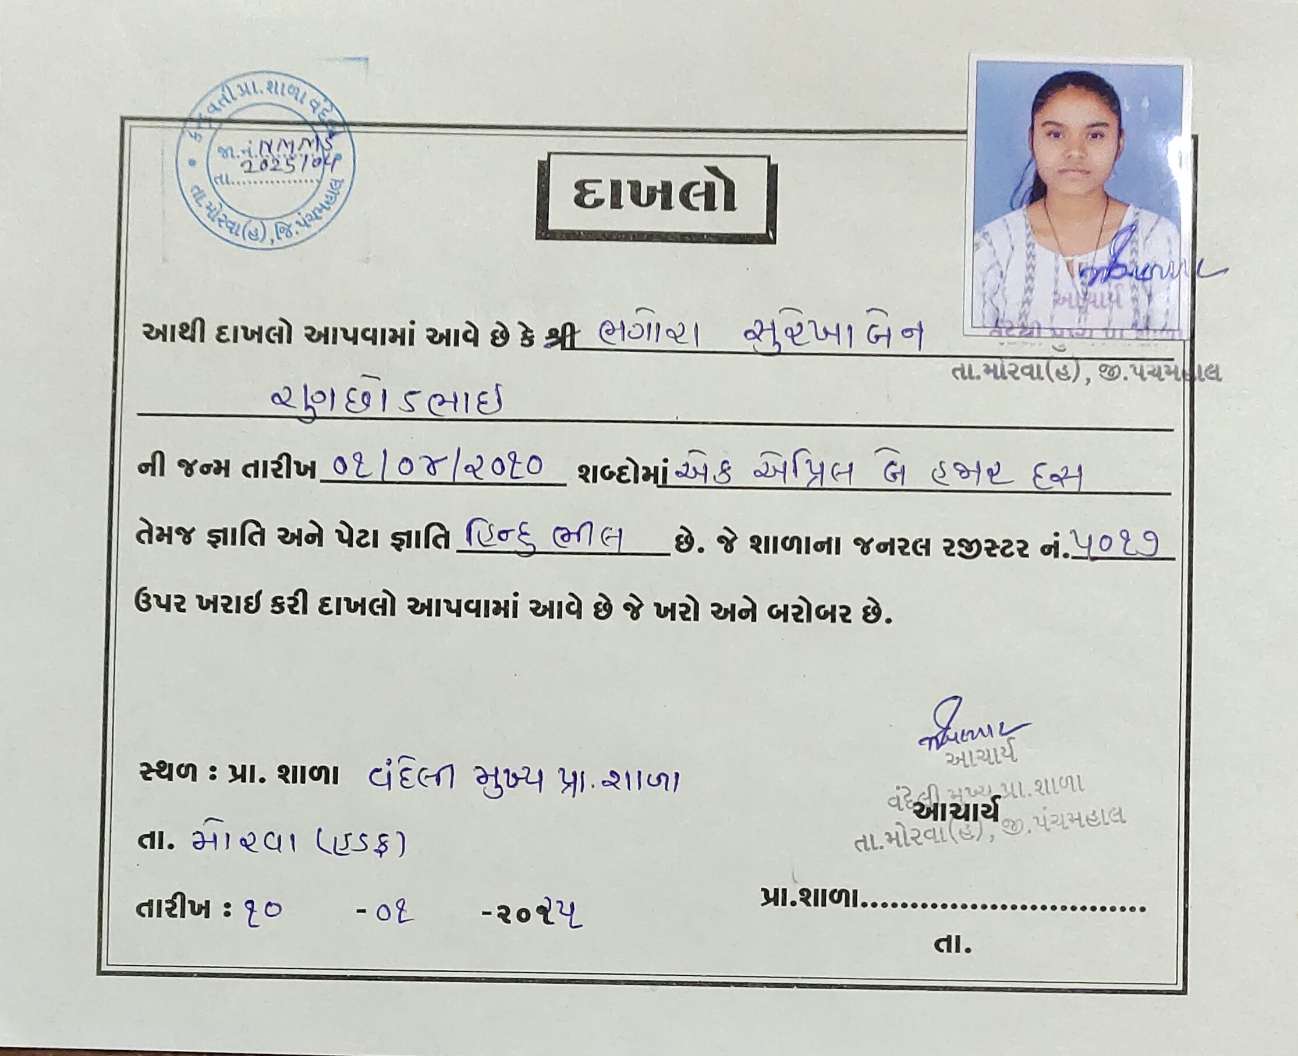 પ્રા.શાળા
જા.નં.NMMS
2025/04
તા..................
તા.મોરવા(હ),જિ.પંચમહાલ
દાખલો
આચાર્ય
તા.મોરવા(હ), જી.પંચમહાલ
આથી દાખલો આપવામાં આવે છે કે શ્રી ભગોરા સુરેખાબેન
રણછોડભાઇ
ની જન્મ તારીખ ૦૧/૦૪/૨૦૧૦ શબ્દોમાં એક એપ્રિલ બે હજાર દસ
તેમજ જ્ઞાતિ અને પેટા જ્ઞાતિ હિન્દુ ભીલ છે. જે શાળાના જનરલ રજીસ્ટર નં.૫૦૧૭
ઉપર ખરાઇ કરી દાખલો આપવામાં આવે છે જે ખરો અને બરોબર છે.
આચાર્ય
સ્થળ : પ્રા. શાળા વંદેલી મુખ્ય પ્રા.શાળા
વંદેલી મુખ્ય પ્રા.શાળા
આચાર્ય
તા.મોરવા(હ), જી.પંચમહાલ
તા. મોરવા (હડફ)
પ્રા.શાળા..............................
તારીખ : ૧૦ -૦૧ -૨૦૨૫
તા.